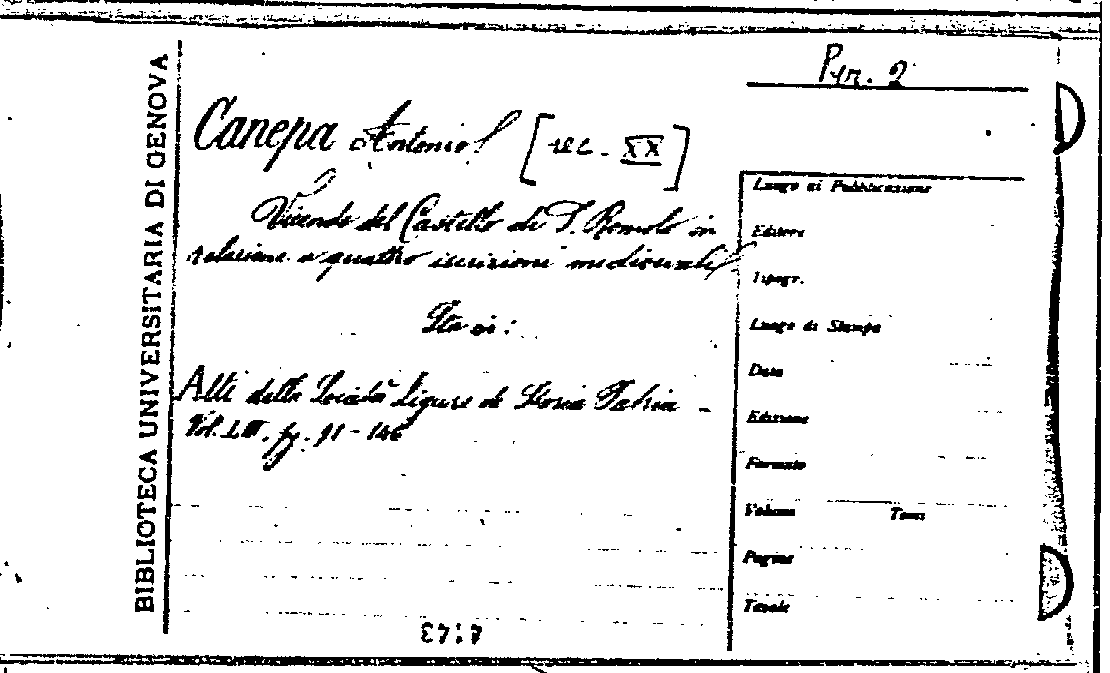 Per. 2
BIBLIOTECA UNIVERSITARIA DI GENOVA
Canepa Antonio [sec. XX]
Vicende del Castello di S. Romolo in
relazione a quattro iscrizioni medievali
Sta in:
Atti della Società Ligure di Storia Patria -
Vol. LIII. pg. 91 - 146
Luogo di Pubblicazione
Editore
Tipogr.
Luogo di Stampa
Data
Edizione
Formato
Volume Tomi
Pagine
Tavole